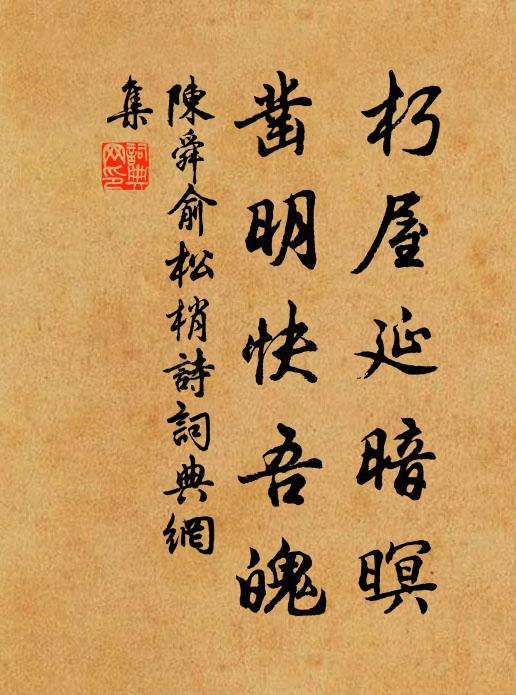 朽屋延暗暝
凿明快吾魄
陳舜俞松梢詩詞典網
集
詞典網印